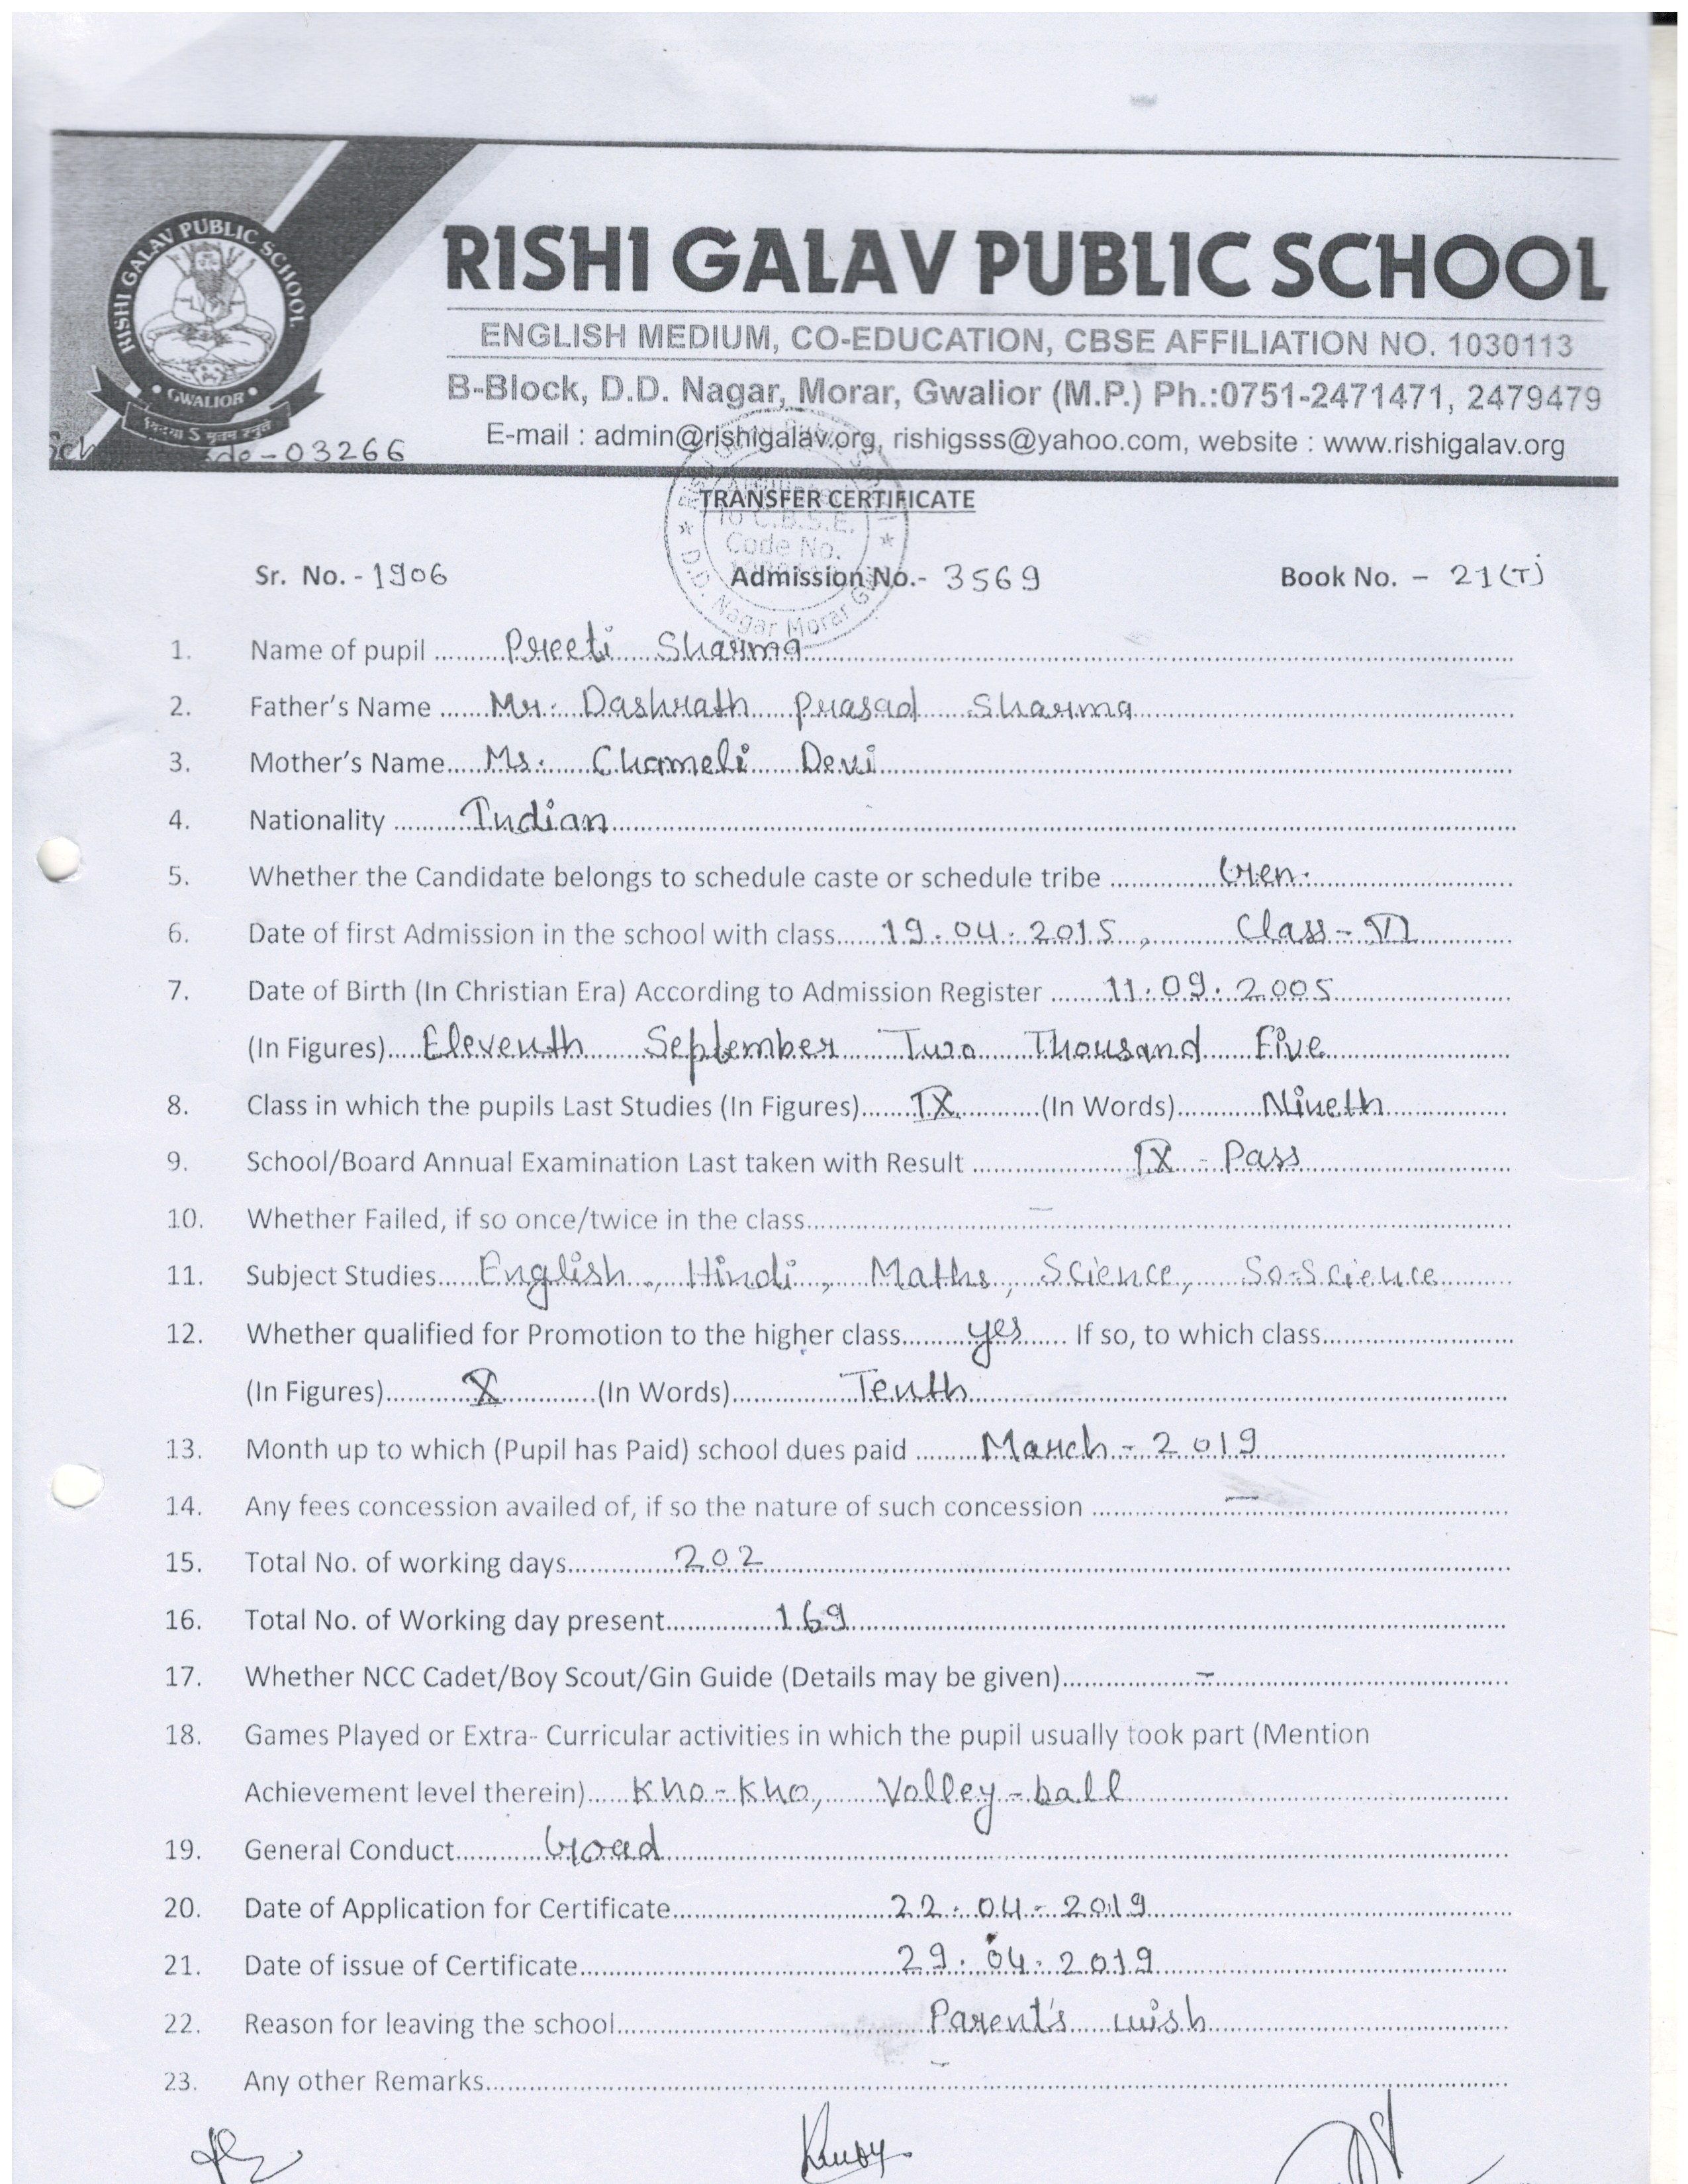 RISHI GALAV PUBLIC SCHOOL
GWALIOR
RISHI GALAV PUBLIC SCHOOL
ENGLISH MEDIUM, CO-EDUCATION, CBSE AFFILIATION NO. 1030113
B-Block, D.D. Nagar, Morar, Gwalior (M.P.) Ph.:0751-2471471, 2479479
E-mail : admin@rishigalav.org, rishigsss@yahoo.com, website : www.rishigalav.org
de-03266
TRANSFER CERTIFICATE
to C.B.S.E.
Code No.
D.D. Nagar Morar
Sr. No. - 1906 Admission No.- 3569 Book No. - 21(T)
1. Name of pupil Preeti Sharma
2. Father's Name Mr. Dashrath Prasad Sharma
3. Mother's Name Ms. Chameli Devi
4. Nationality Indian
5. Whether the Candidate belongs to schedule caste or schedule tribe Gen.
6. Date of first Admission in the school with class 19.04.2015, Class - VI
7. Date of Birth (In Christian Era) According to Admission Register 11.09.2005
(In Figures) Eleventh September Two Thousand Five
8. Class in which the pupils Last Studies (In Figures) IX (In Words) Nineth
9. School/Board Annual Examination Last taken with Result IX - Pass
10. Whether Failed, if so once/twice in the class —
11. Subject Studies English, Hindi, Maths, Science, So-Science
12. Whether qualified for Promotion to the higher class yes If so, to which class
(In Figures) X (In Words) Tenth
13. Month up to which (Pupil has Paid) school dues paid March - 2019
14. Any fees concession availed of, if so the nature of such concession —
15. Total No. of working days 202
16. Total No. of Working day present 169
17. Whether NCC Cadet/Boy Scout/Gin Guide (Details may be given) -
18. Games Played or Extra- Curricular activities in which the pupil usually took part (Mention
Achievement level therein) Kho-Kho, Volley-ball
19. General Conduct Good
20. Date of Application for Certificate 22.04.2019
21. Date of issue of Certificate 29.04.2019
22. Reason for leaving the school Parent's wish
23. Any other Remarks -